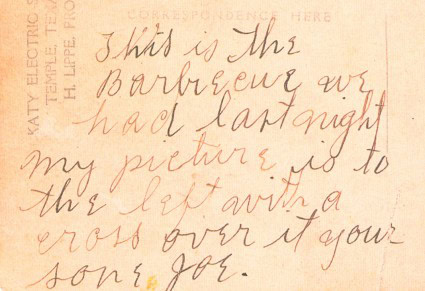 CORRESPONDENCE HERE
KATY ELECTRIC S
TEMPLE, TEX
H. LIPPE, PRO
This is the
Barbecue we
had last night
My picture is to
the left with a
cross over it your
sone Joe.